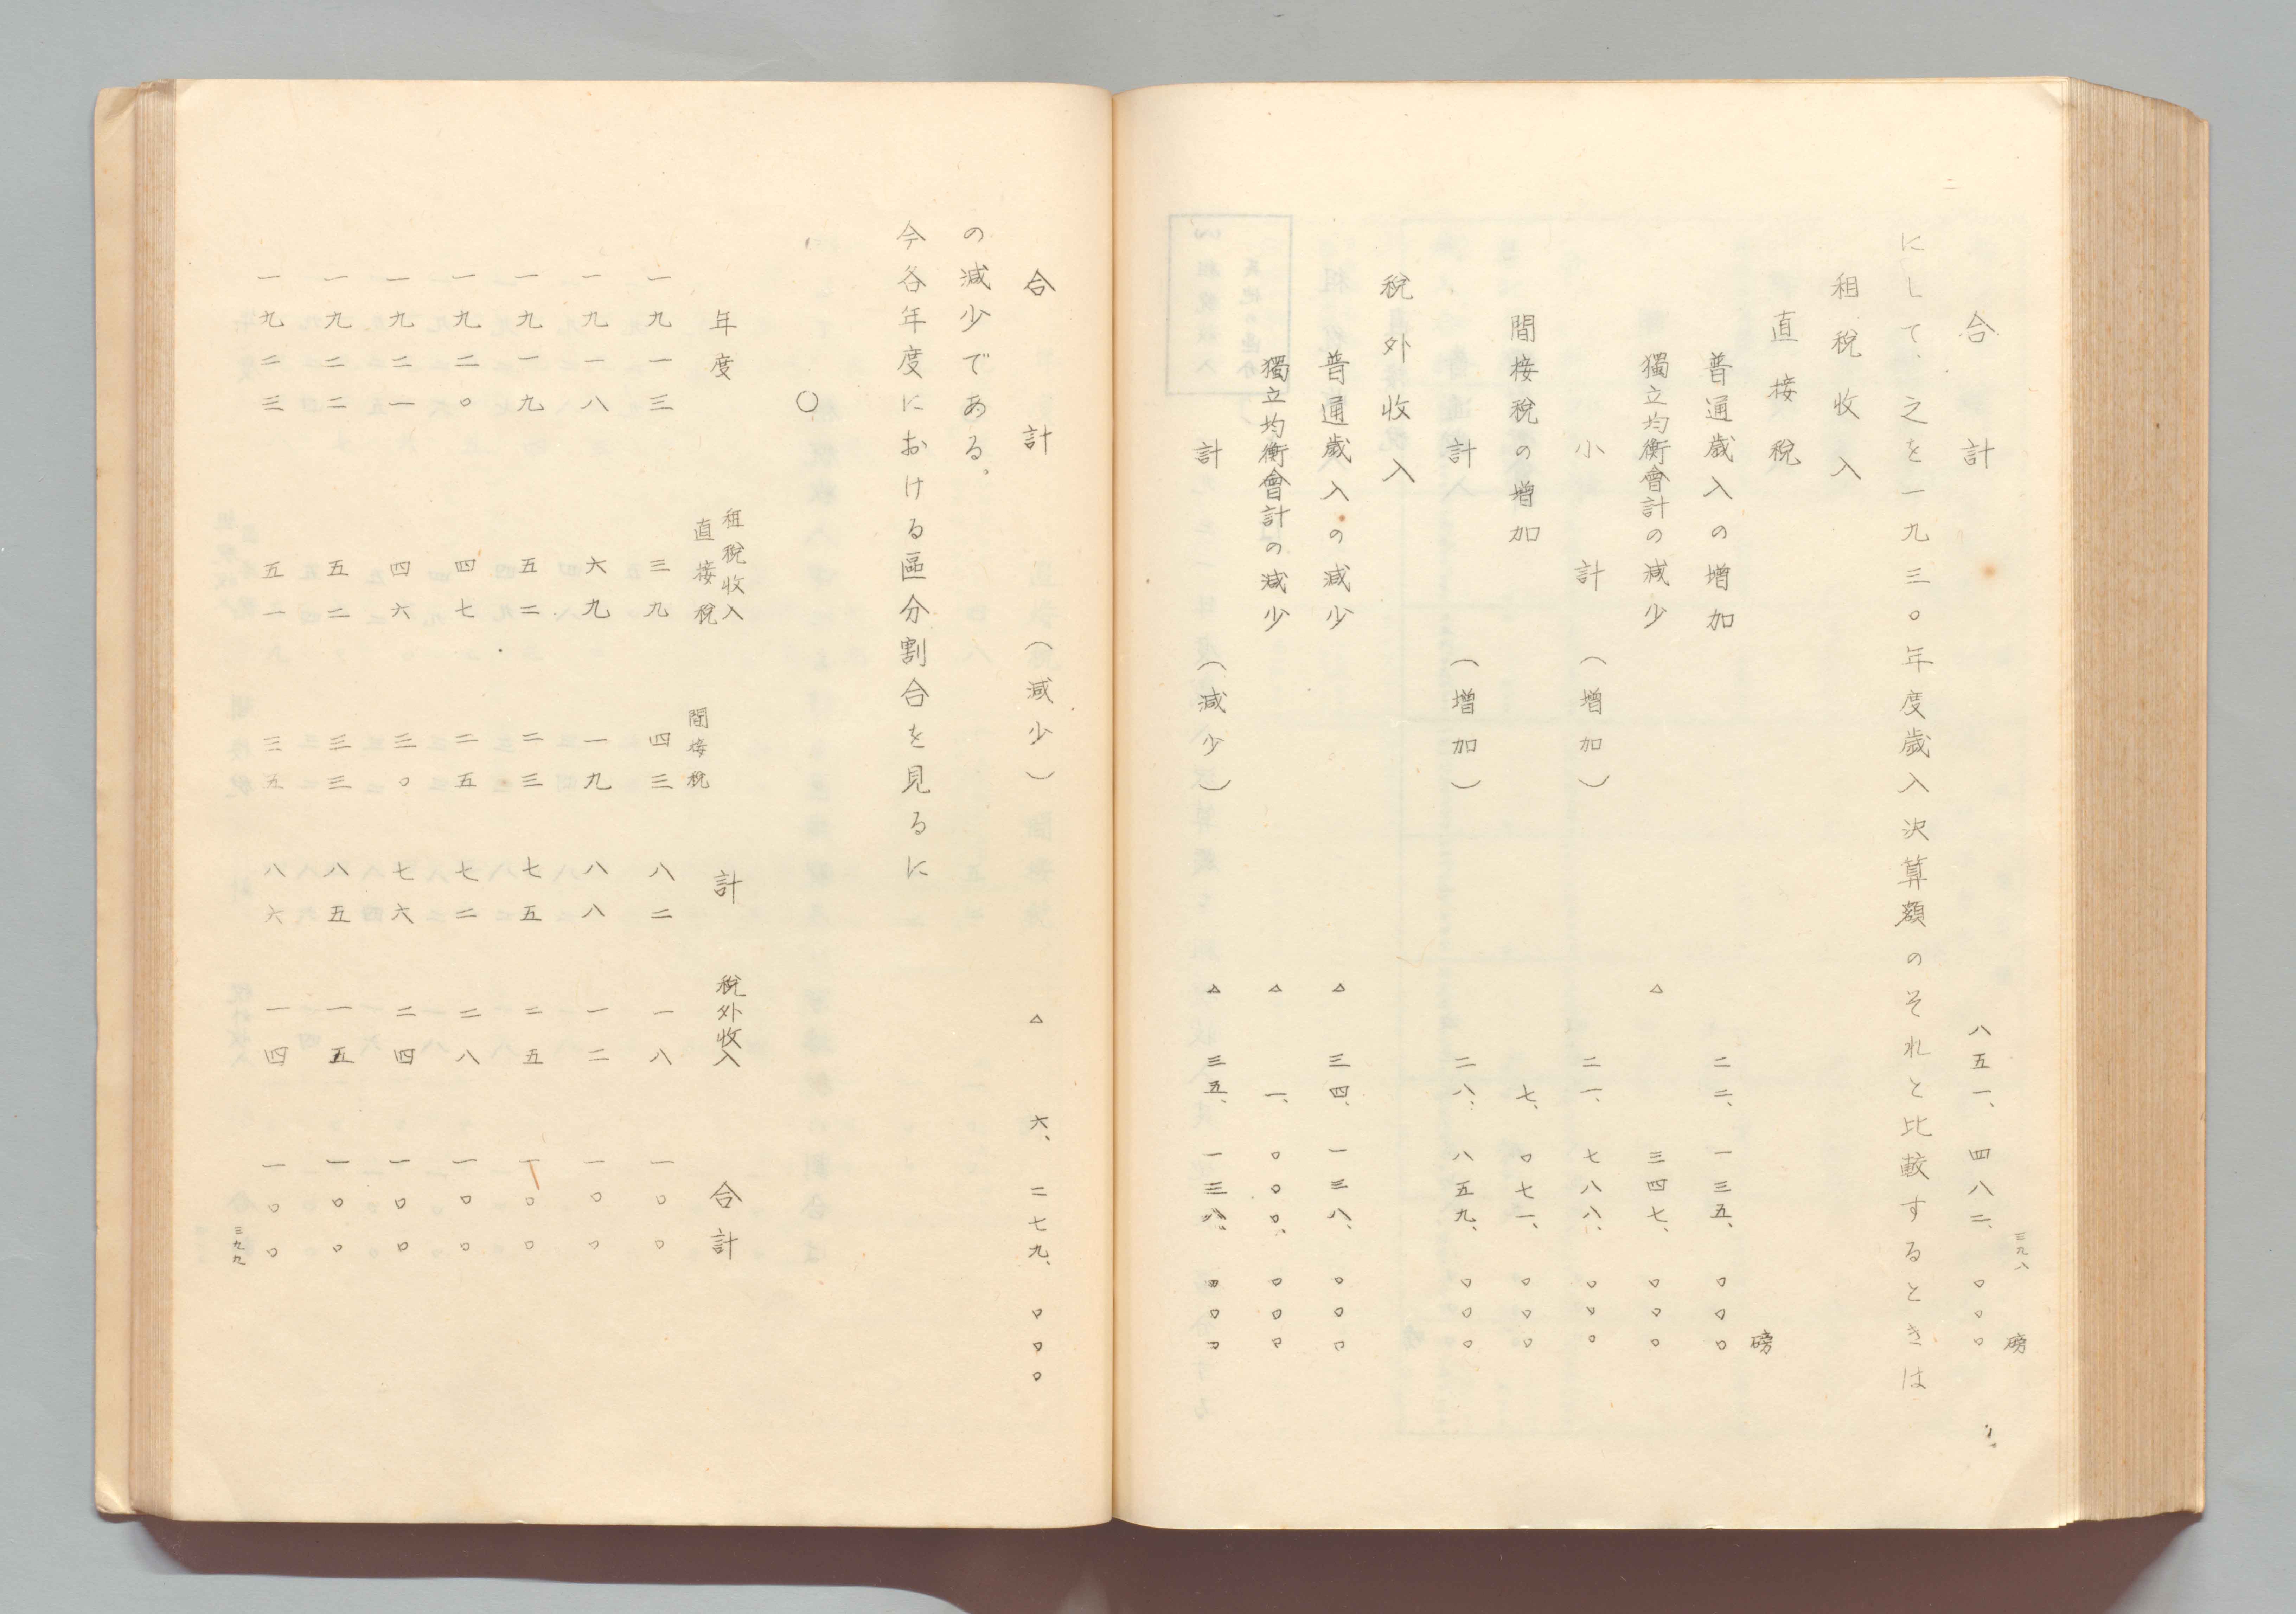 三九八
磅
合計 八五一、四八二、〇〇〇
にして、之を一九三〇年度歳入決算額のそれと比較するときは
租税収入
直接税
磅
普通歳入の増加 二二、一三五、〇〇〇
獨立均衡會計の減少 △ 三四七、〇〇〇
小計（増加） 二一、七八八、〇〇〇
間接税の増加 七、〇七一、〇〇〇
計（増加） 二八、八五九、〇〇〇
税外収入
普通歳入の減少 △ 三四、一三八、〇〇〇
獨立均衡會計の減少 △ 一、〇〇〇、〇〇〇
計（減少） △ 三五、一三八、〇〇〇
合計（減少） △ 六、二七九、〇〇〇
の減少である。
今各年度における區分割合を見るに
〇
年度 租税収入 直接税 間接税 計 税外収入 合計
一九一三 三九 四三 八二 一八 一〇〇
一九一八 六九 一九 八八 一二 一〇〇
一九一九 五二 二三 七五 二五 一〇〇
一九二〇 四七 二五 七二 二八 一〇〇
一九二一 四六 三〇 七六 二四 一〇〇
一九二二 五二 三三 八五 一五 一〇〇
一九二三 五一 三五 八六 一四 一〇〇
三九九